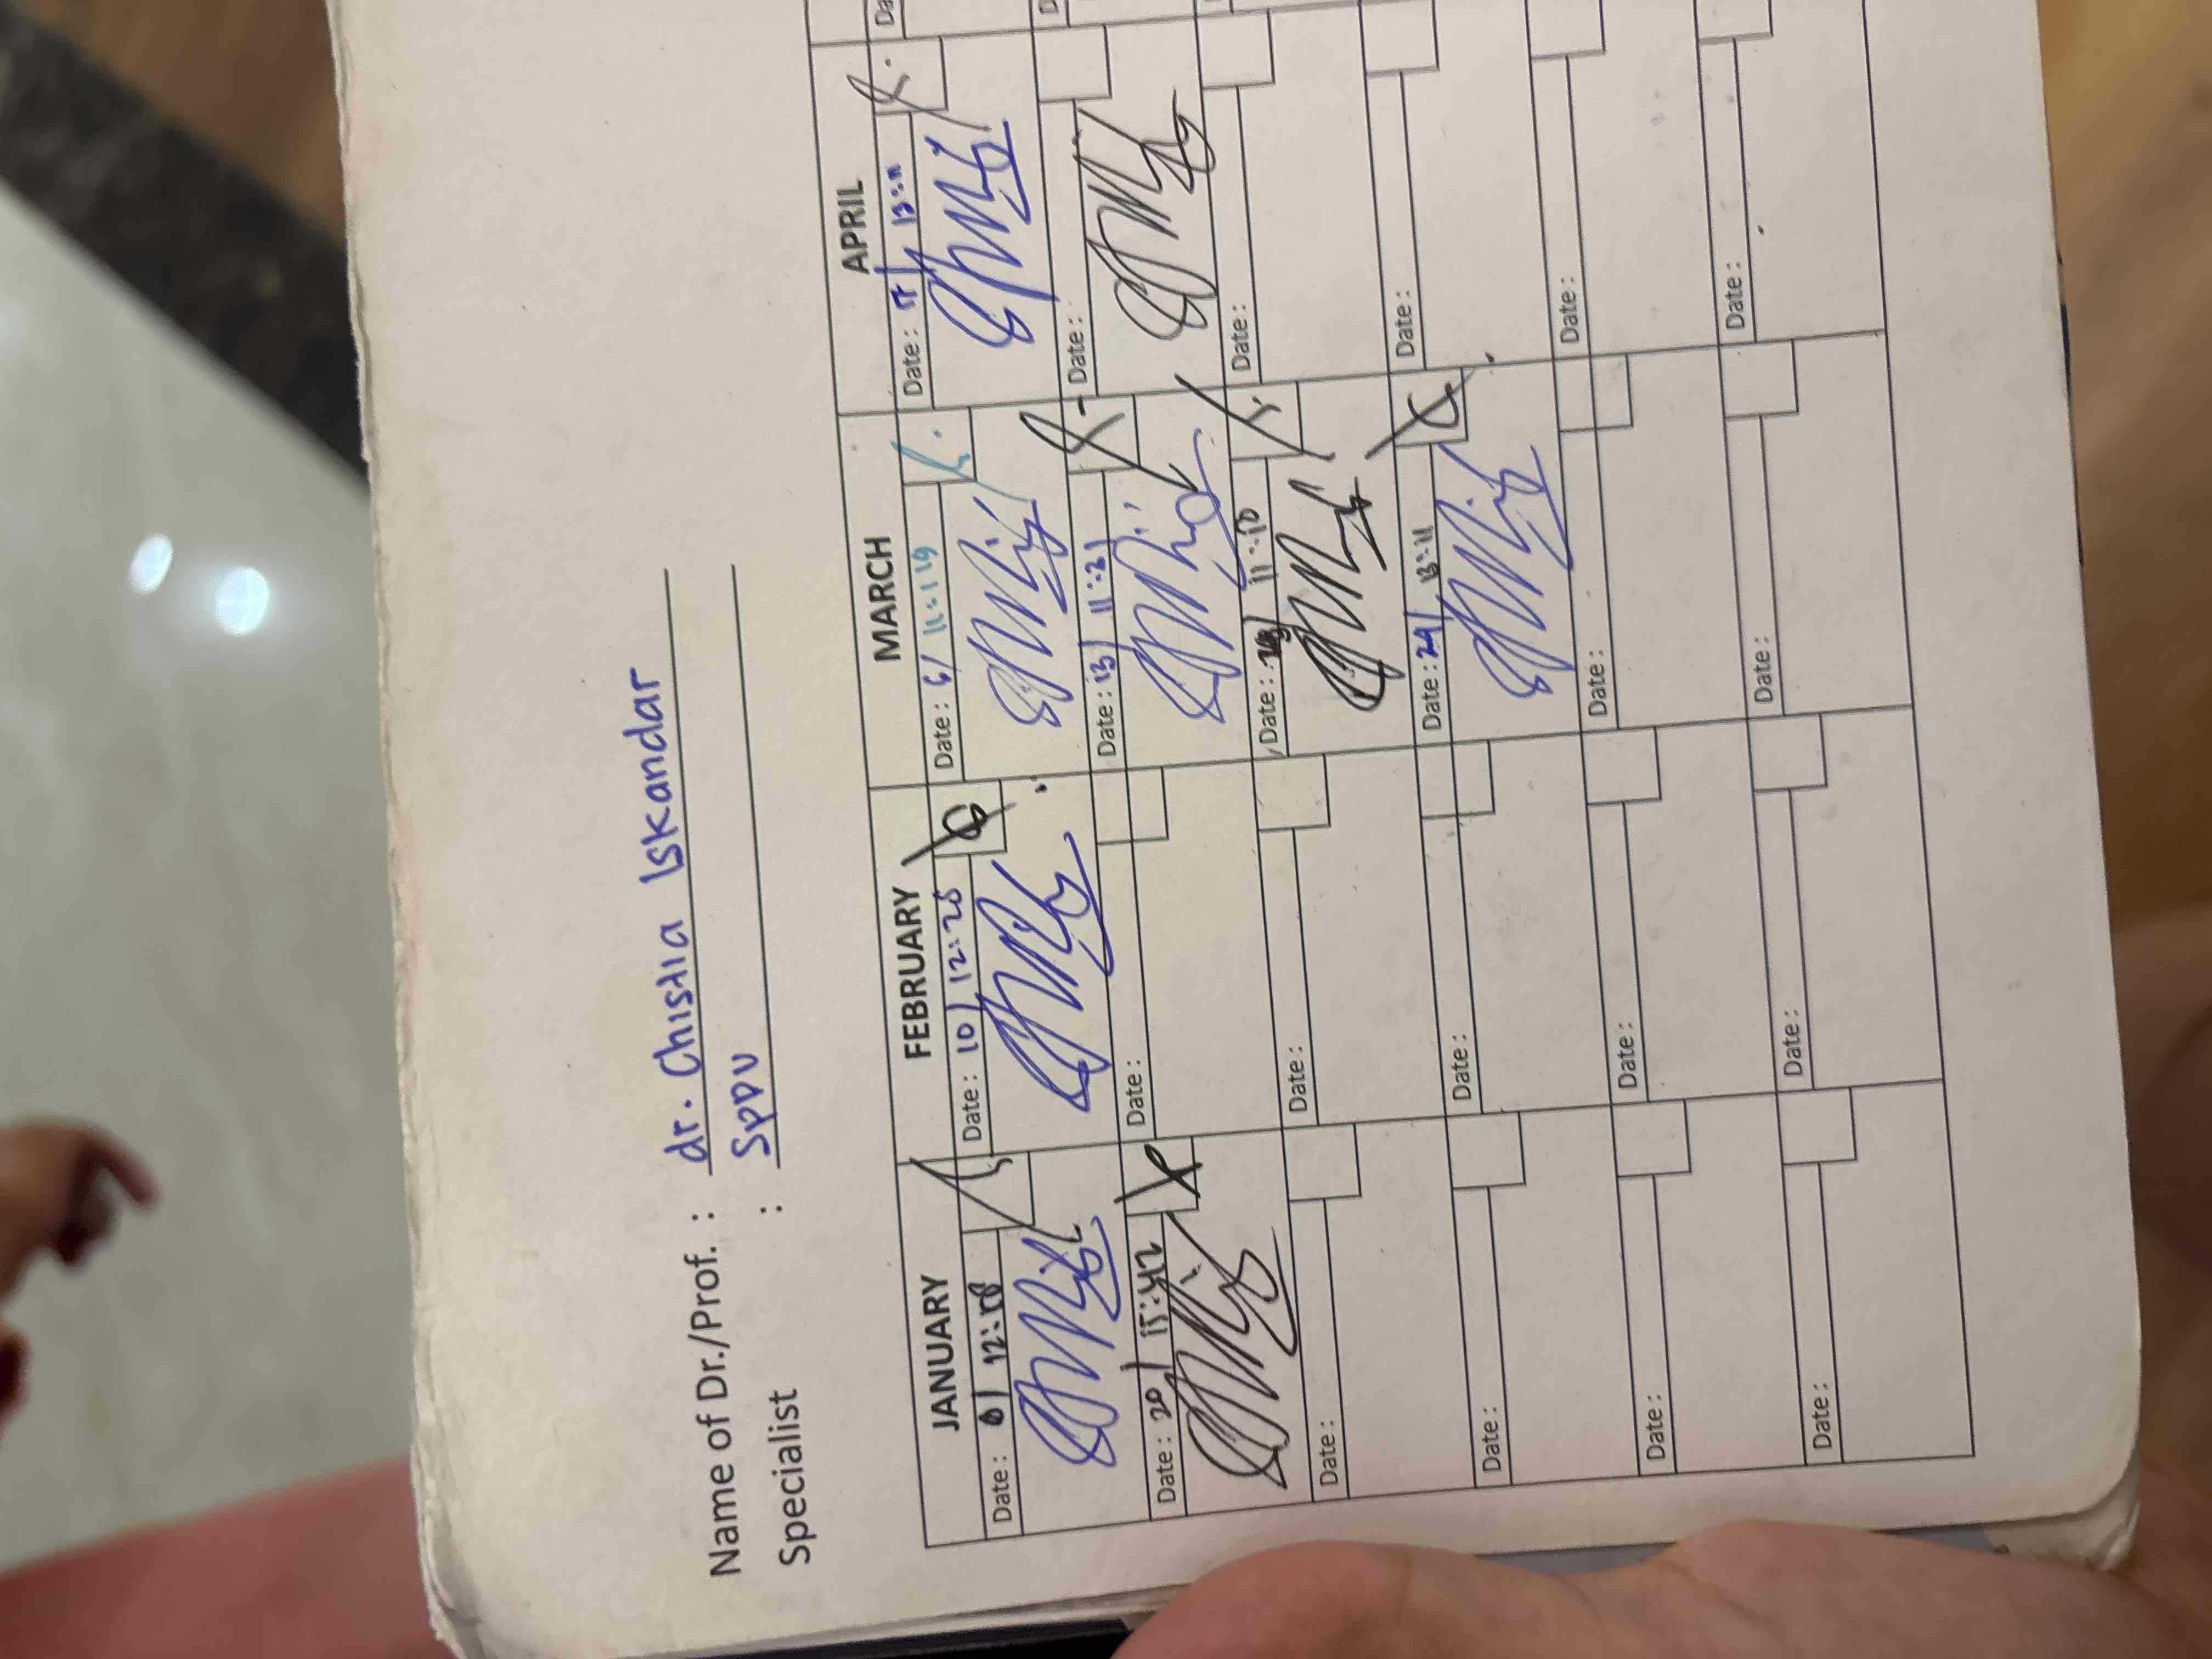 Name of Dr./Prof. : dr. Chistia Iskandar
Specialist : SpPU
JANUARY FEBRUARY MARCH APRIL
Date : 6/ 12:18 Date : 10/ 12:26 Date : 6/ 11:19 Date : 17/ 13:11
Date : 20/ 15:42 Date : Date : 13/ 11:21 Date :
Date : Date : Date : 11:10 Date :
Date : Date : Date : 24/ 13:11 Date :
Date : Date : Date : Date :
Date : Date : Date : Date :